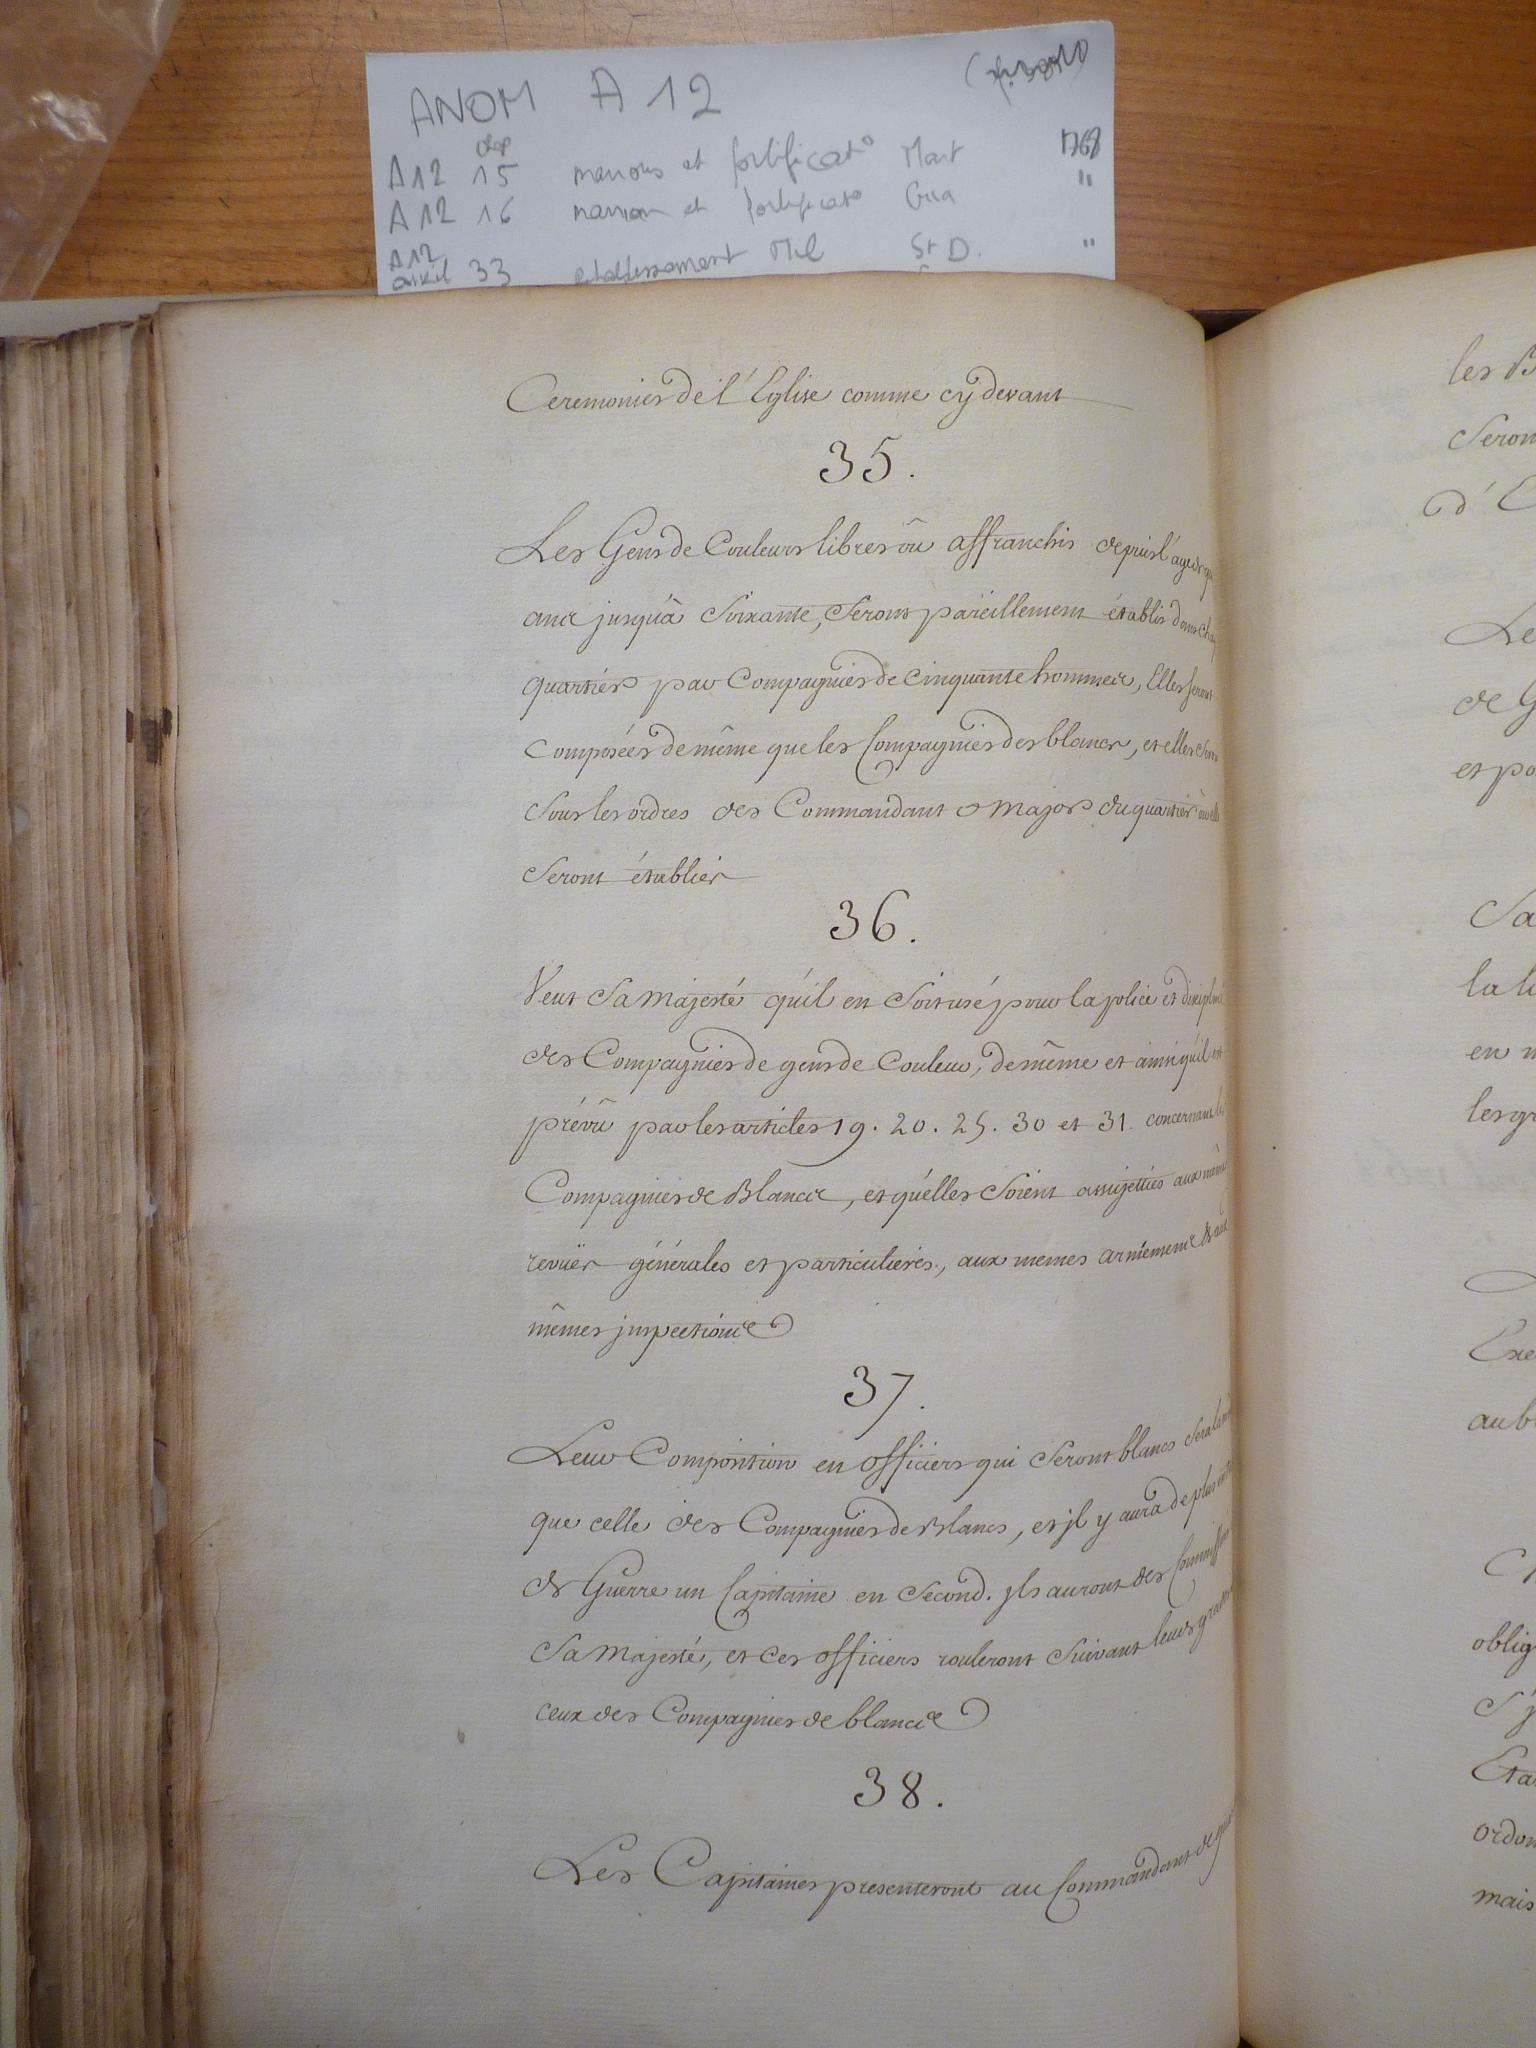 ANOM A 12
chap
A12 15 maisons et fortificato Mart 1768
A12 16 maison et fortificato Gua "
A12
articl 33 etablissement Mil St D. "
Ceremonies de l'Eglise comme cy devant
35.
Les Gens de Couleurs libres ôu affranchis depuis l'age de
ans jusqu'à Soixante, Seront pareillement établis dans
quartiers par Compagnies de Cinquante hommes, Elles seront
composées de même que les Compagnies des blancs, et elles Seront
Sous les ordres des Commandant & Major du quartier ou elles
Seront établies
36.
Veut Sa Majesté qu'il en Soit usé pour la police et discipline
des Compagnies de gens de Couleur, de même et ainsi qu'il est
prévû par les articles 19. 20. 25. 30 et 31. concernant les
Compagnies de Blancs, et qu'elles Soient assujetties aux mêmes
revuës générales et particulieres, aux memes armements & aux
mêmes jnspections
37.
Leur Composition en officiers qui Seront blancs Sera la même
que celle des Compagnies de Blancs, et jl y aura de plus en tems
de Guerre un Capitaine en Second. jls auront des Commissions
Sa Majesté, et ces officiers rouleront Suivant leurs grades
ceux des Compagnies de blancs
38.
Les Capitaines presenteront au Commandant de
les B
Seron
d'E
Le
de G
et po
Sa
la li
en m
les gr
Exe
au b
oblig
S'j
Eta
ordon
mais